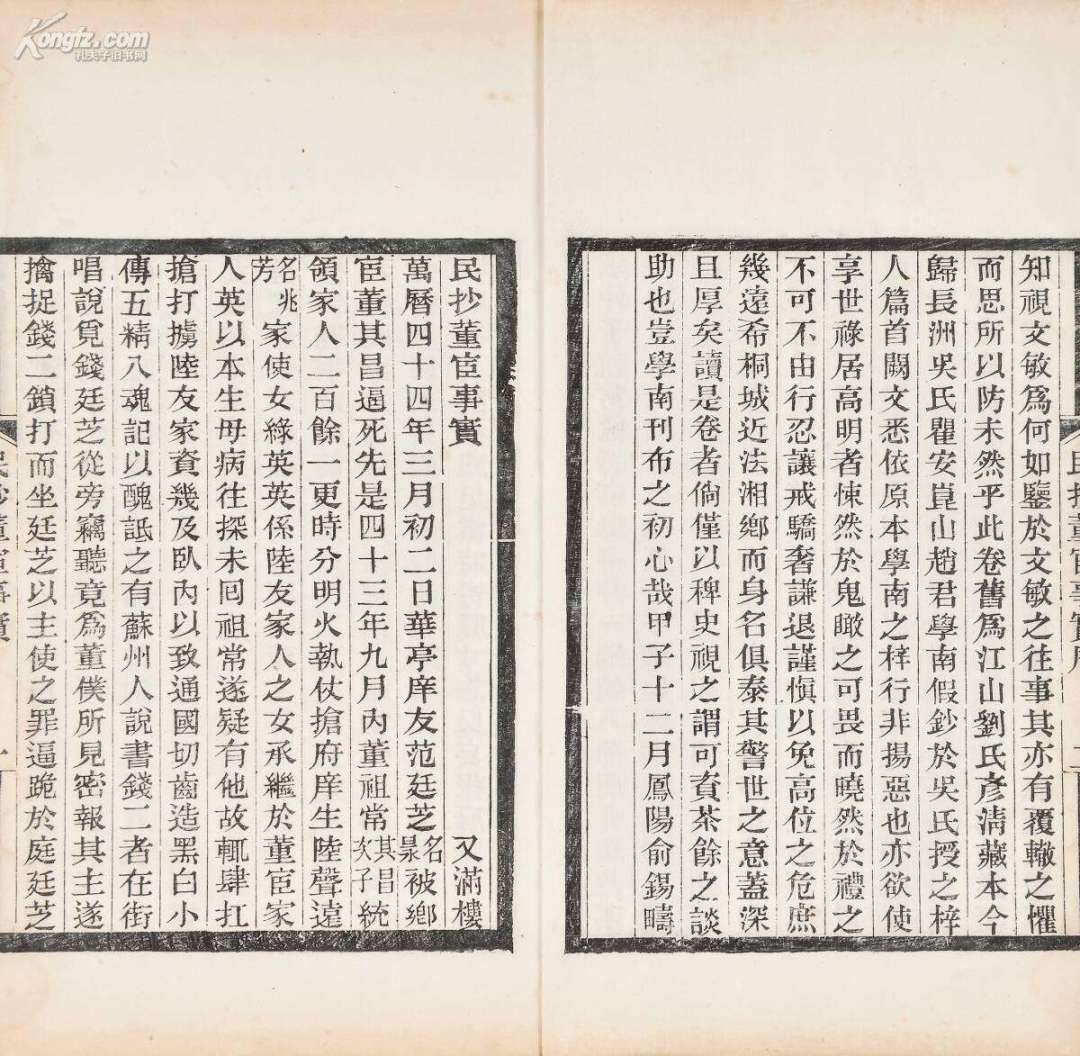 Kongfz.com
孔夫子旧书网
知視文敏爲何如鑒於文敏之往事其亦有覆轍之懼
而思所以防未然乎此卷舊爲江山劉氏彥淸藏本今
歸長洲吳氏瞿安崑山趙君學南假鈔於吳氏授之梓
人篇首闕文悉依原本學南之梓行非揚惡也亦欲使
享世祿居高明者悚然於鬼瞰之可畏而曉然於禮之
不可不由行忍讓戒驕奢謙退謹愼以免高位之危庶
幾遠希桐城近法湘鄉而身名俱泰其警世之意蓋深
且厚矣讀是卷者倘僅以稗史視之謂可資茶餘之談
助也豈學南刊布之初心哉甲子十二月鳳陽俞錫疇
民抄董宦事實
又滿樓
萬曆四十四年三月初二日華亭庠友范廷芝名㫤被鄉
宦董其昌逼死先是四十三年九月內董祖常其昌次子統
領家人二百餘一更時分明火執仗搶府庠生陸聲遠
名兆芳家使女綠英英係陸友家人之女承繼於董宦家
人英以本生母病往探未囘祖常遂疑有他故輒肆扛
搶打擄陸友家資幾及臥內以致通國切齒造黑白小
傳五精八魂記以醜詆之有蘇州人說書錢二者在街
唱說覓錢廷芝從旁竊聽竟爲董僕所見密報其主遂
擒捉錢二鎖打而坐廷芝以主使之罪逼跪於庭廷芝